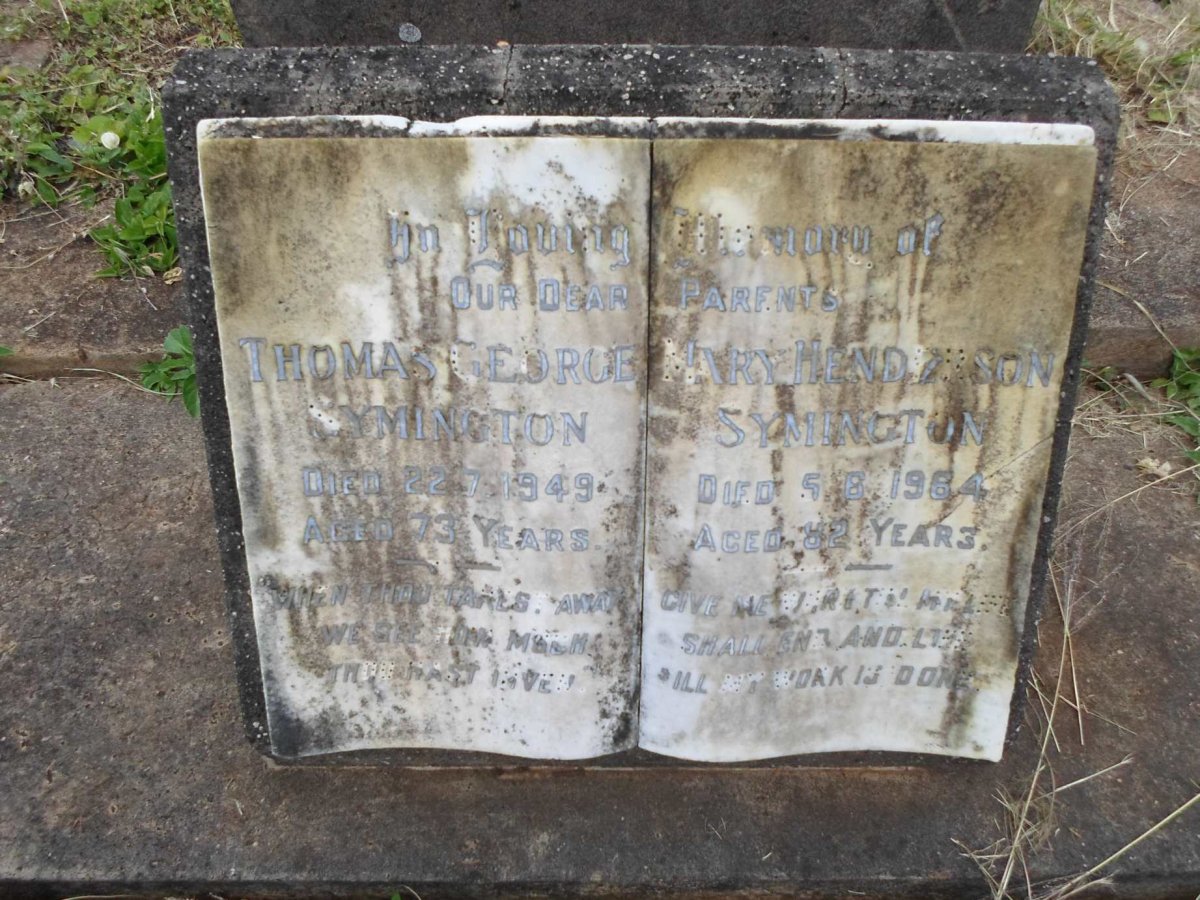 In Loving Memory of
OUR DEAR PARENTS
THOMAS GEORGE
SYMINGTON
DIED 22 7 1949
AGED 73 YEARS.
WHEN THOU TAKES AWAY
WE SEE HOW MUCH
THOU HAST GIVEN
MARY HENDERSON
SYMINGTON
DIED 5 8 1964
AGED 82 YEARS.
GIVE ME
SHALL AND
TILL MY WORK IS DONE.